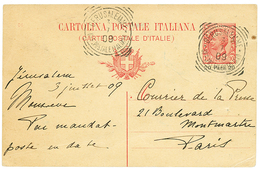 CARTOLINA POSTALE ITALIANA
(CARTE POSTALE D'ITALIE)
09
Jérusalem
3 juillet 09
Monsieur
Par mandat
poste en date
Courrier de la Presse
21 Boulevard
Montmartre
Paris